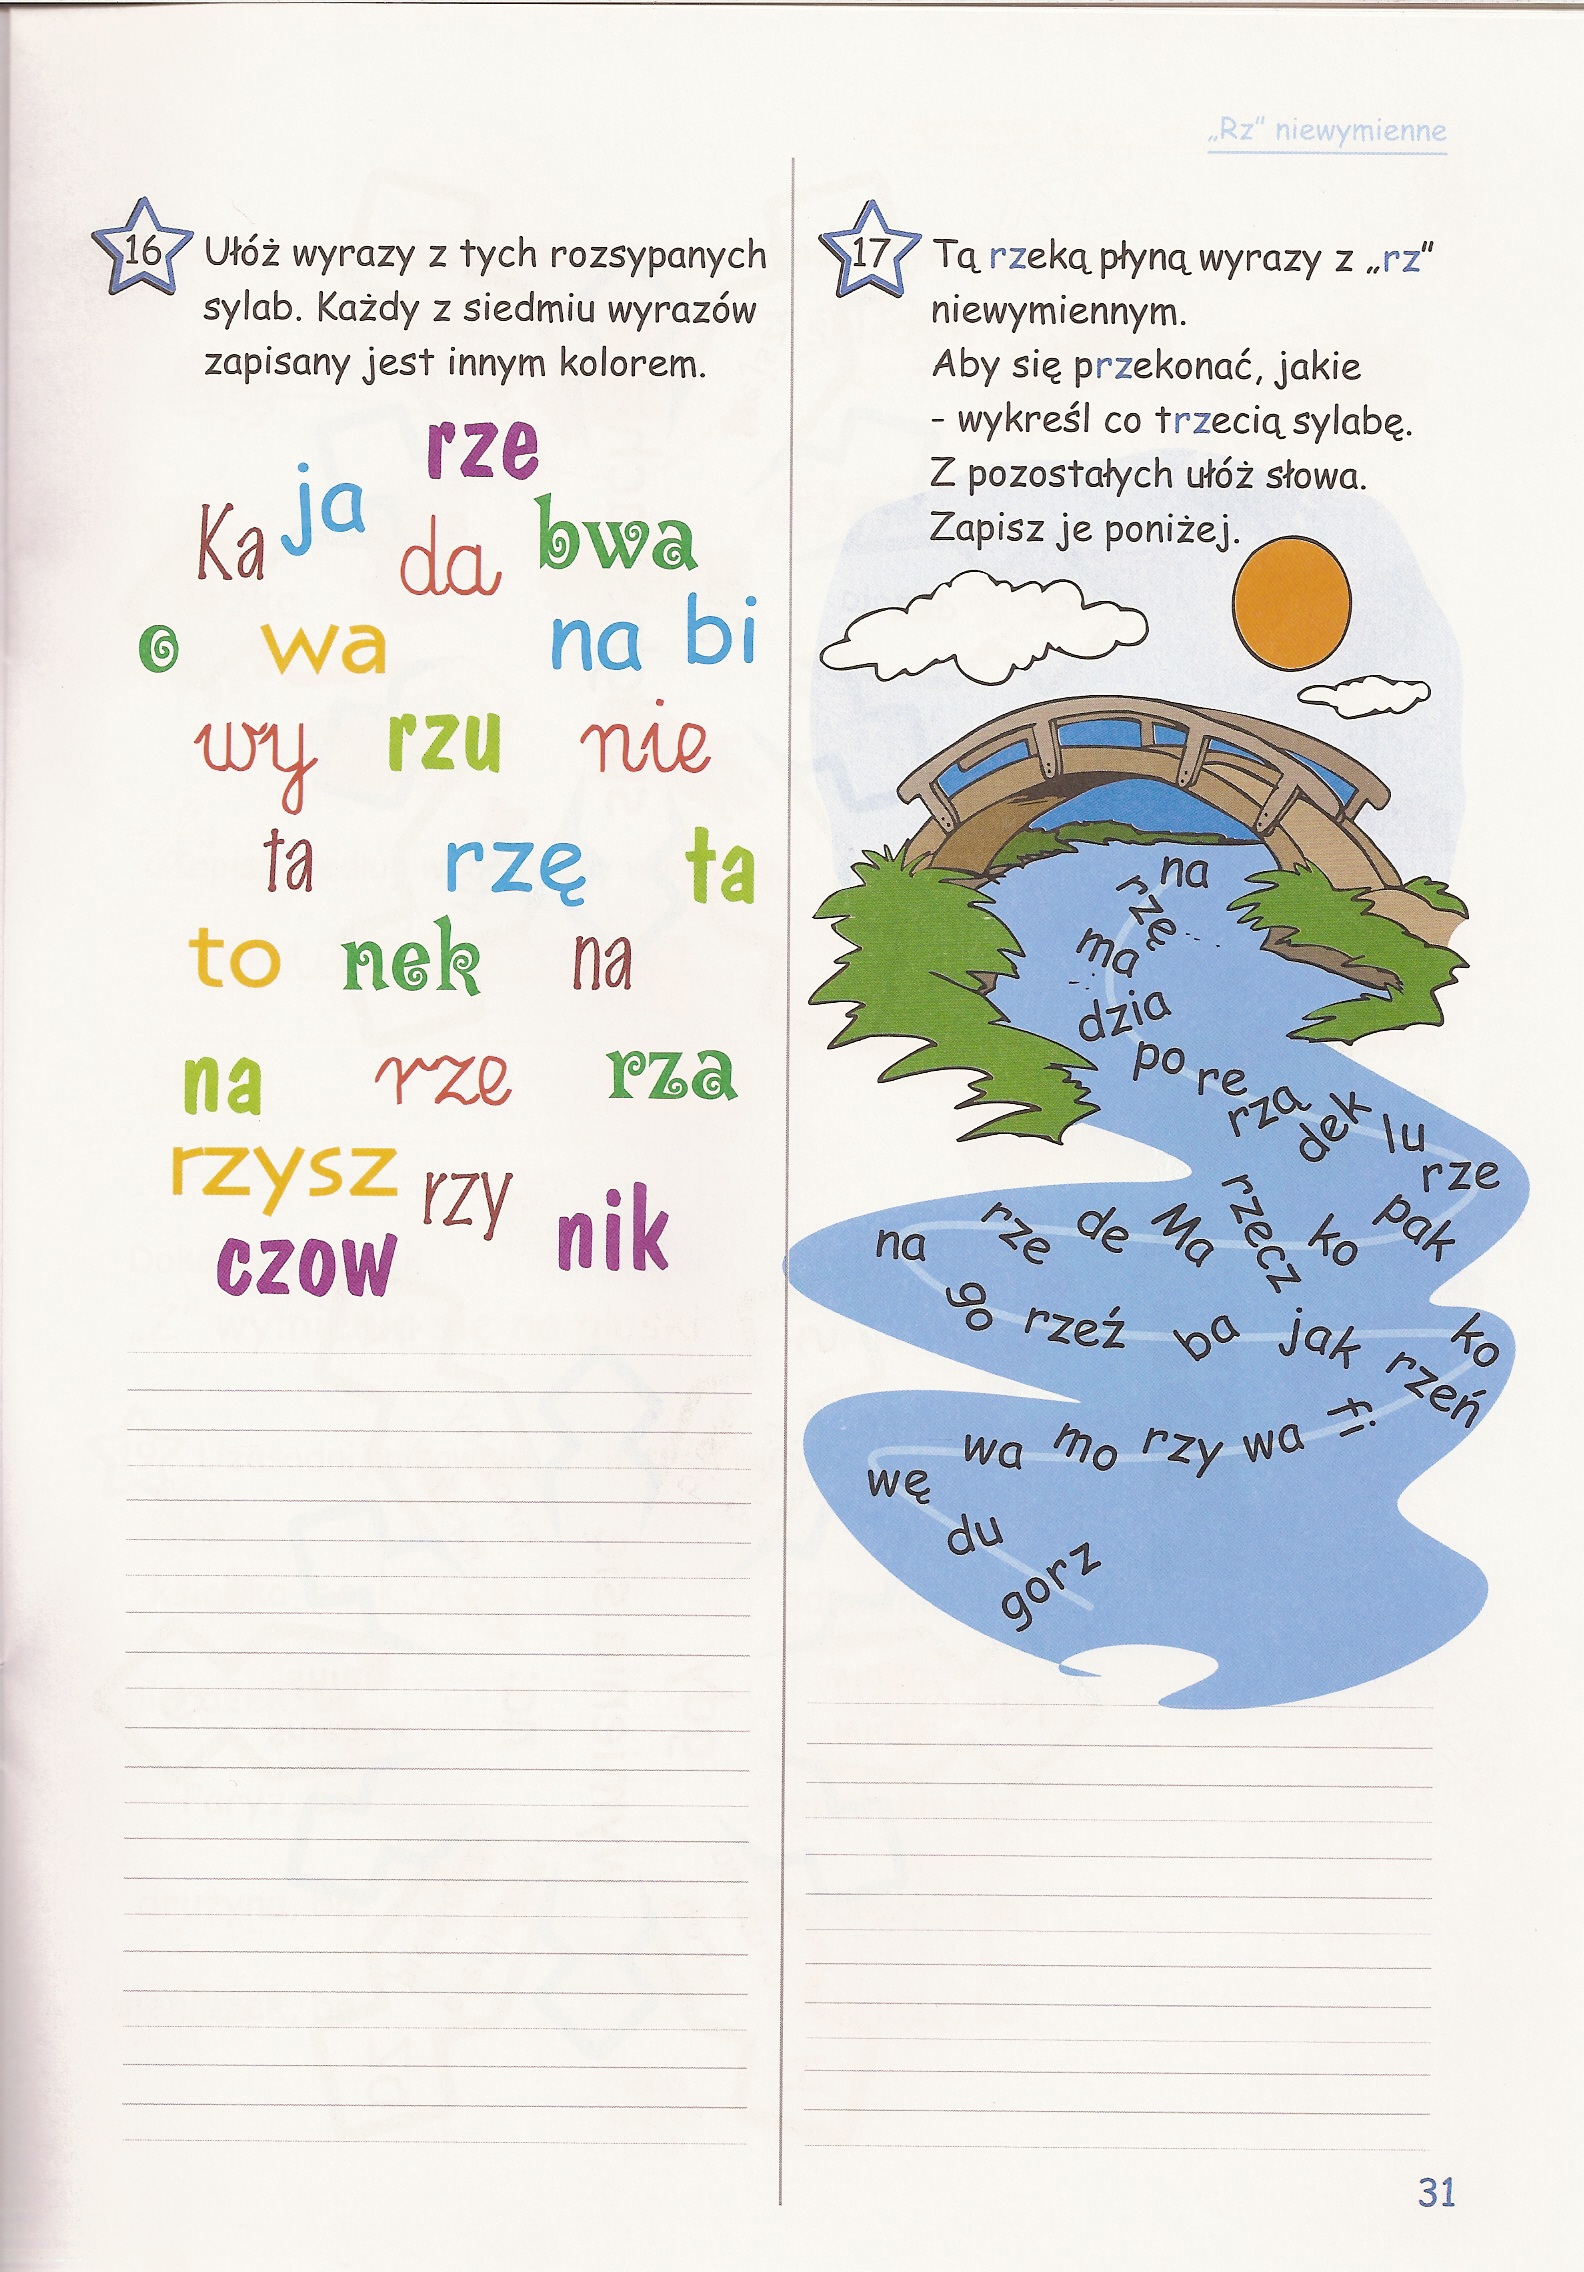 „Rz" niewymienne
16
Ułóż wyrazy z tych rozsypanych
sylab. Każdy z siedmiu wyrazów
zapisany jest innym kolorem.
rze
Ka ja da bwa
o wa na bi
wy rzu nie
ta rzę ta
to nek na
na rze rza
rzysz rzy nik
czow
17
Tą rzeką płyną wyrazy z „rz"
niewymiennym.
Aby się przekonać, jakie
- wykreśl co trzecią sylabę.
Z pozostałych ułóż słowa.
Zapisz je poniżej.
na
rzę
ma
dzia
po re
rza dek lu
rze
na rze de Ma rzecz ko pak
go rzeź ba jak rzeń ko
wa mo rzy wa fi
wę
du
gorz
31